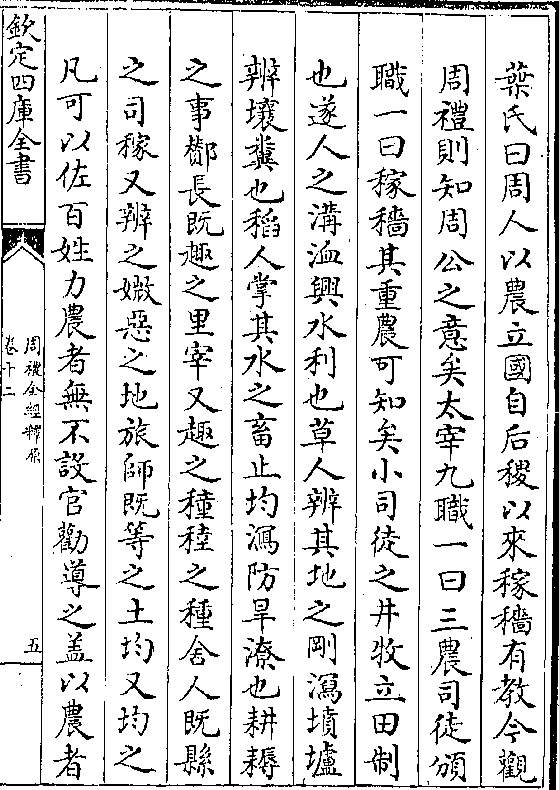 葉氏曰周人以農立國自后稷以來稼穡有教今觀
周禮則知周公之意矣太宰九職一曰三農司徒頒
職一曰稼穡其重農可知矣小司徒之井牧立田制
也遂人之溝洫興水利也草人辨其地之剛瀉墳壚
辨壤糞也稻人掌其水之畜止均瀉防旱潦也耕耨
之事酇長既趣之里宰又趣之種稑之種舍人既縣
之司稼又辨之媺惡之地旅師既等之土均又均之
凡可以佐百姓力農者無不設官勸導之盖以農者
欽定四庫全書
周禮全經釋原
卷十二
五